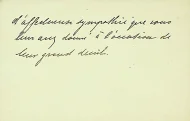 d'affectueuse sympathie que vous
leur avez donné à l'occasion de
leur grand deuil.